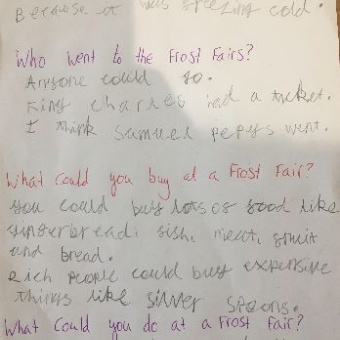 Because it was freezing cold.
Who went to the Frost Fairs?
Anyone could go.
King charles had a ticket.
I think Samuel pepys went.
What could you buy at a Frost Fair?
you could buy lots of food like
gingerbread, fish, meat, fruit
and bread.
Rich people could buy expensive
things like silver spoons.
What could you do at a Frost Fair?